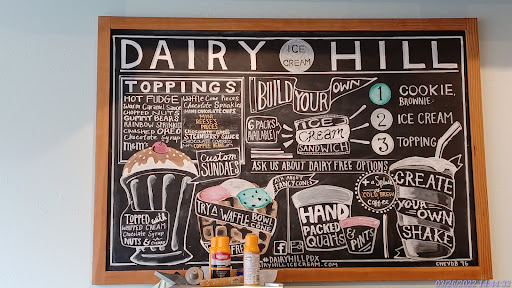 DAIRY HILL
ICE
CREAM
TOPPINGS
HOT FUDGE
Warm Caramel Sauce
CHOPPED NUTS
GUMMY BEARS
RAINBOW SPRINKLES
CRUSHED OREO
Chocolate Syrup
m&m's
Waffle Cone Pieces
Chocolate Sprinkles
MINI CHOCOLATE CHIPS
MINI
REESE'S
PIECES
STRAWBERRY SAUCE
BUILD YOUR OWN
6 PACKS
AVAILABLE!
ICE
Cream
SANDWICH
1 COOKIE
BROWNIE
2 ICE CREAM
3 TOPPING
ASK US ABOUT DAIRY FREE OPTIONS
Custom
SUNDAES
TOPPED with
WHIPPED CREAM
Chocolate Syrup
NUTS &
ASK ABOUT
FANCY CONES
TRY A WAFFLE BOWL
CONE
HAND
PACKED
Quarts
& PINTS
+ a Splash
COLD BREW
Coffee
CREATE
YOUR
OWN
SHAKE
#DAIRYHILLPDX
DAIRYHILLICECREAM.COM
03/26/2022 14:44:32